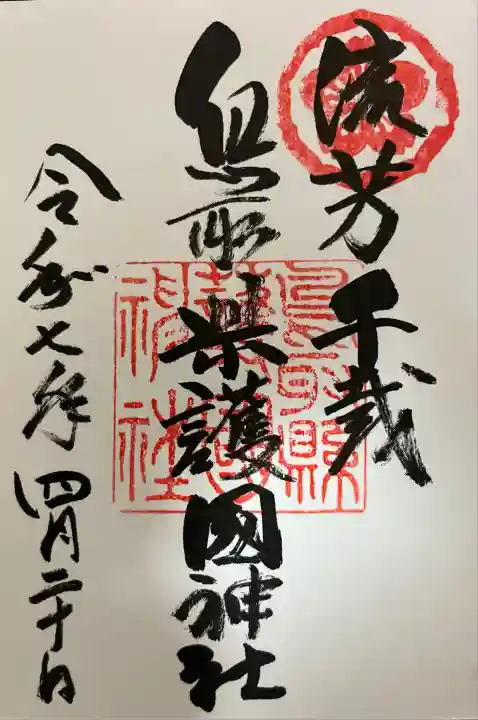 流芳千載
鳥取県護國神社
令和七年四月二十日
鳥取縣護國神社